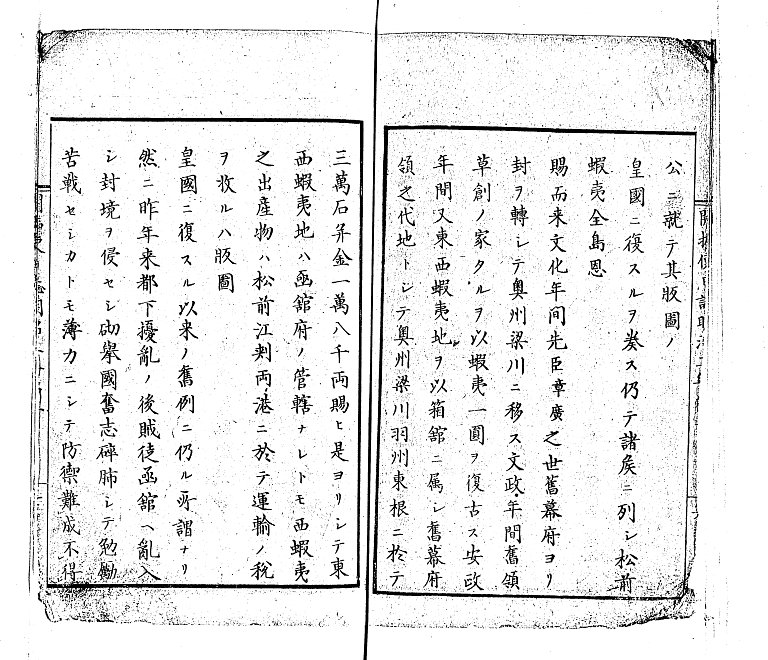 公ニ就テ其版圖ノ
皇國ニ復スルヲ奏ス仍テ諸矦ニ列シ松前
蝦夷全島恩
賜而来文化年间先臣章廣之世舊幕府ヨリ
封ヲ轉シテ奥州梁川ニ移ス文政年間舊領
草創ノ家タルヲ以蝦夷一圓ヲ復古ス安政
年間又東西蝦夷地ヲ以箱舘ニ属シ舊幕府
領之代地トシテ奥州梁川羽州東根ニ於テ
三萬石并金一萬八千両賜ヒ是ヨリシテ東
西蝦夷地ハ凾舘府ノ管轄ナレトモ西蝦夷
之出産物ハ松前江判両港ニ於テ運輸ノ税
ヲ收ルハ版圖
皇國ニ復スル以来ノ舊例ニ仍ル所謂ナリ
然ニ昨年来都下擾亂ノ後賊徒凾舘ヘ亂入
シ封境ヲ侵セシ砌擧國奮志碎肺シテ勉勵
苦戦セシカトモ薄力ニシテ防禦難成不得